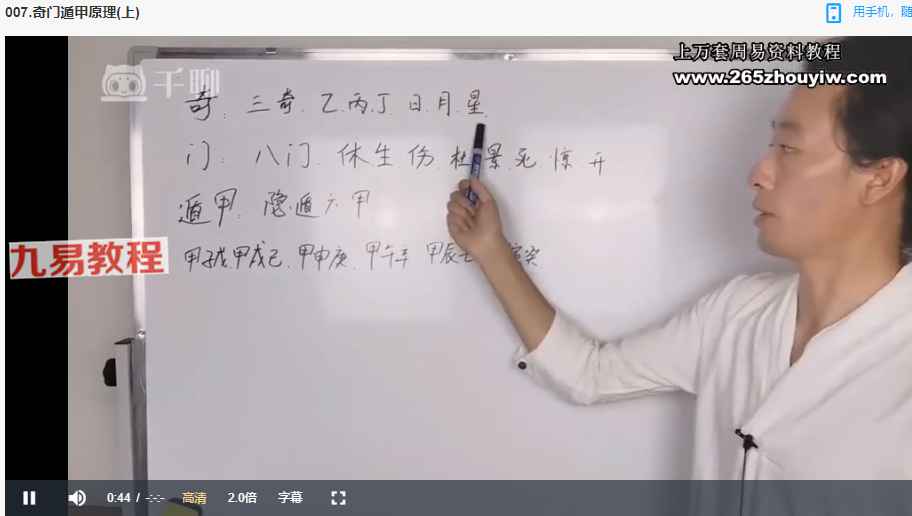 007.奇门遁甲原理(上)
用手机，随
上万套周易资料教程
www.265zhouyiw.com
千聊
奇：三奇.乙.丙.丁 日.月.星.
门：八门.休生伤.杜景.死.惊开
遁甲：隐遁六甲
九易教程
甲子戊甲戌己.甲申庚.甲午辛 甲辰
0:44 / -:-:-
高清
2.0倍
字幕